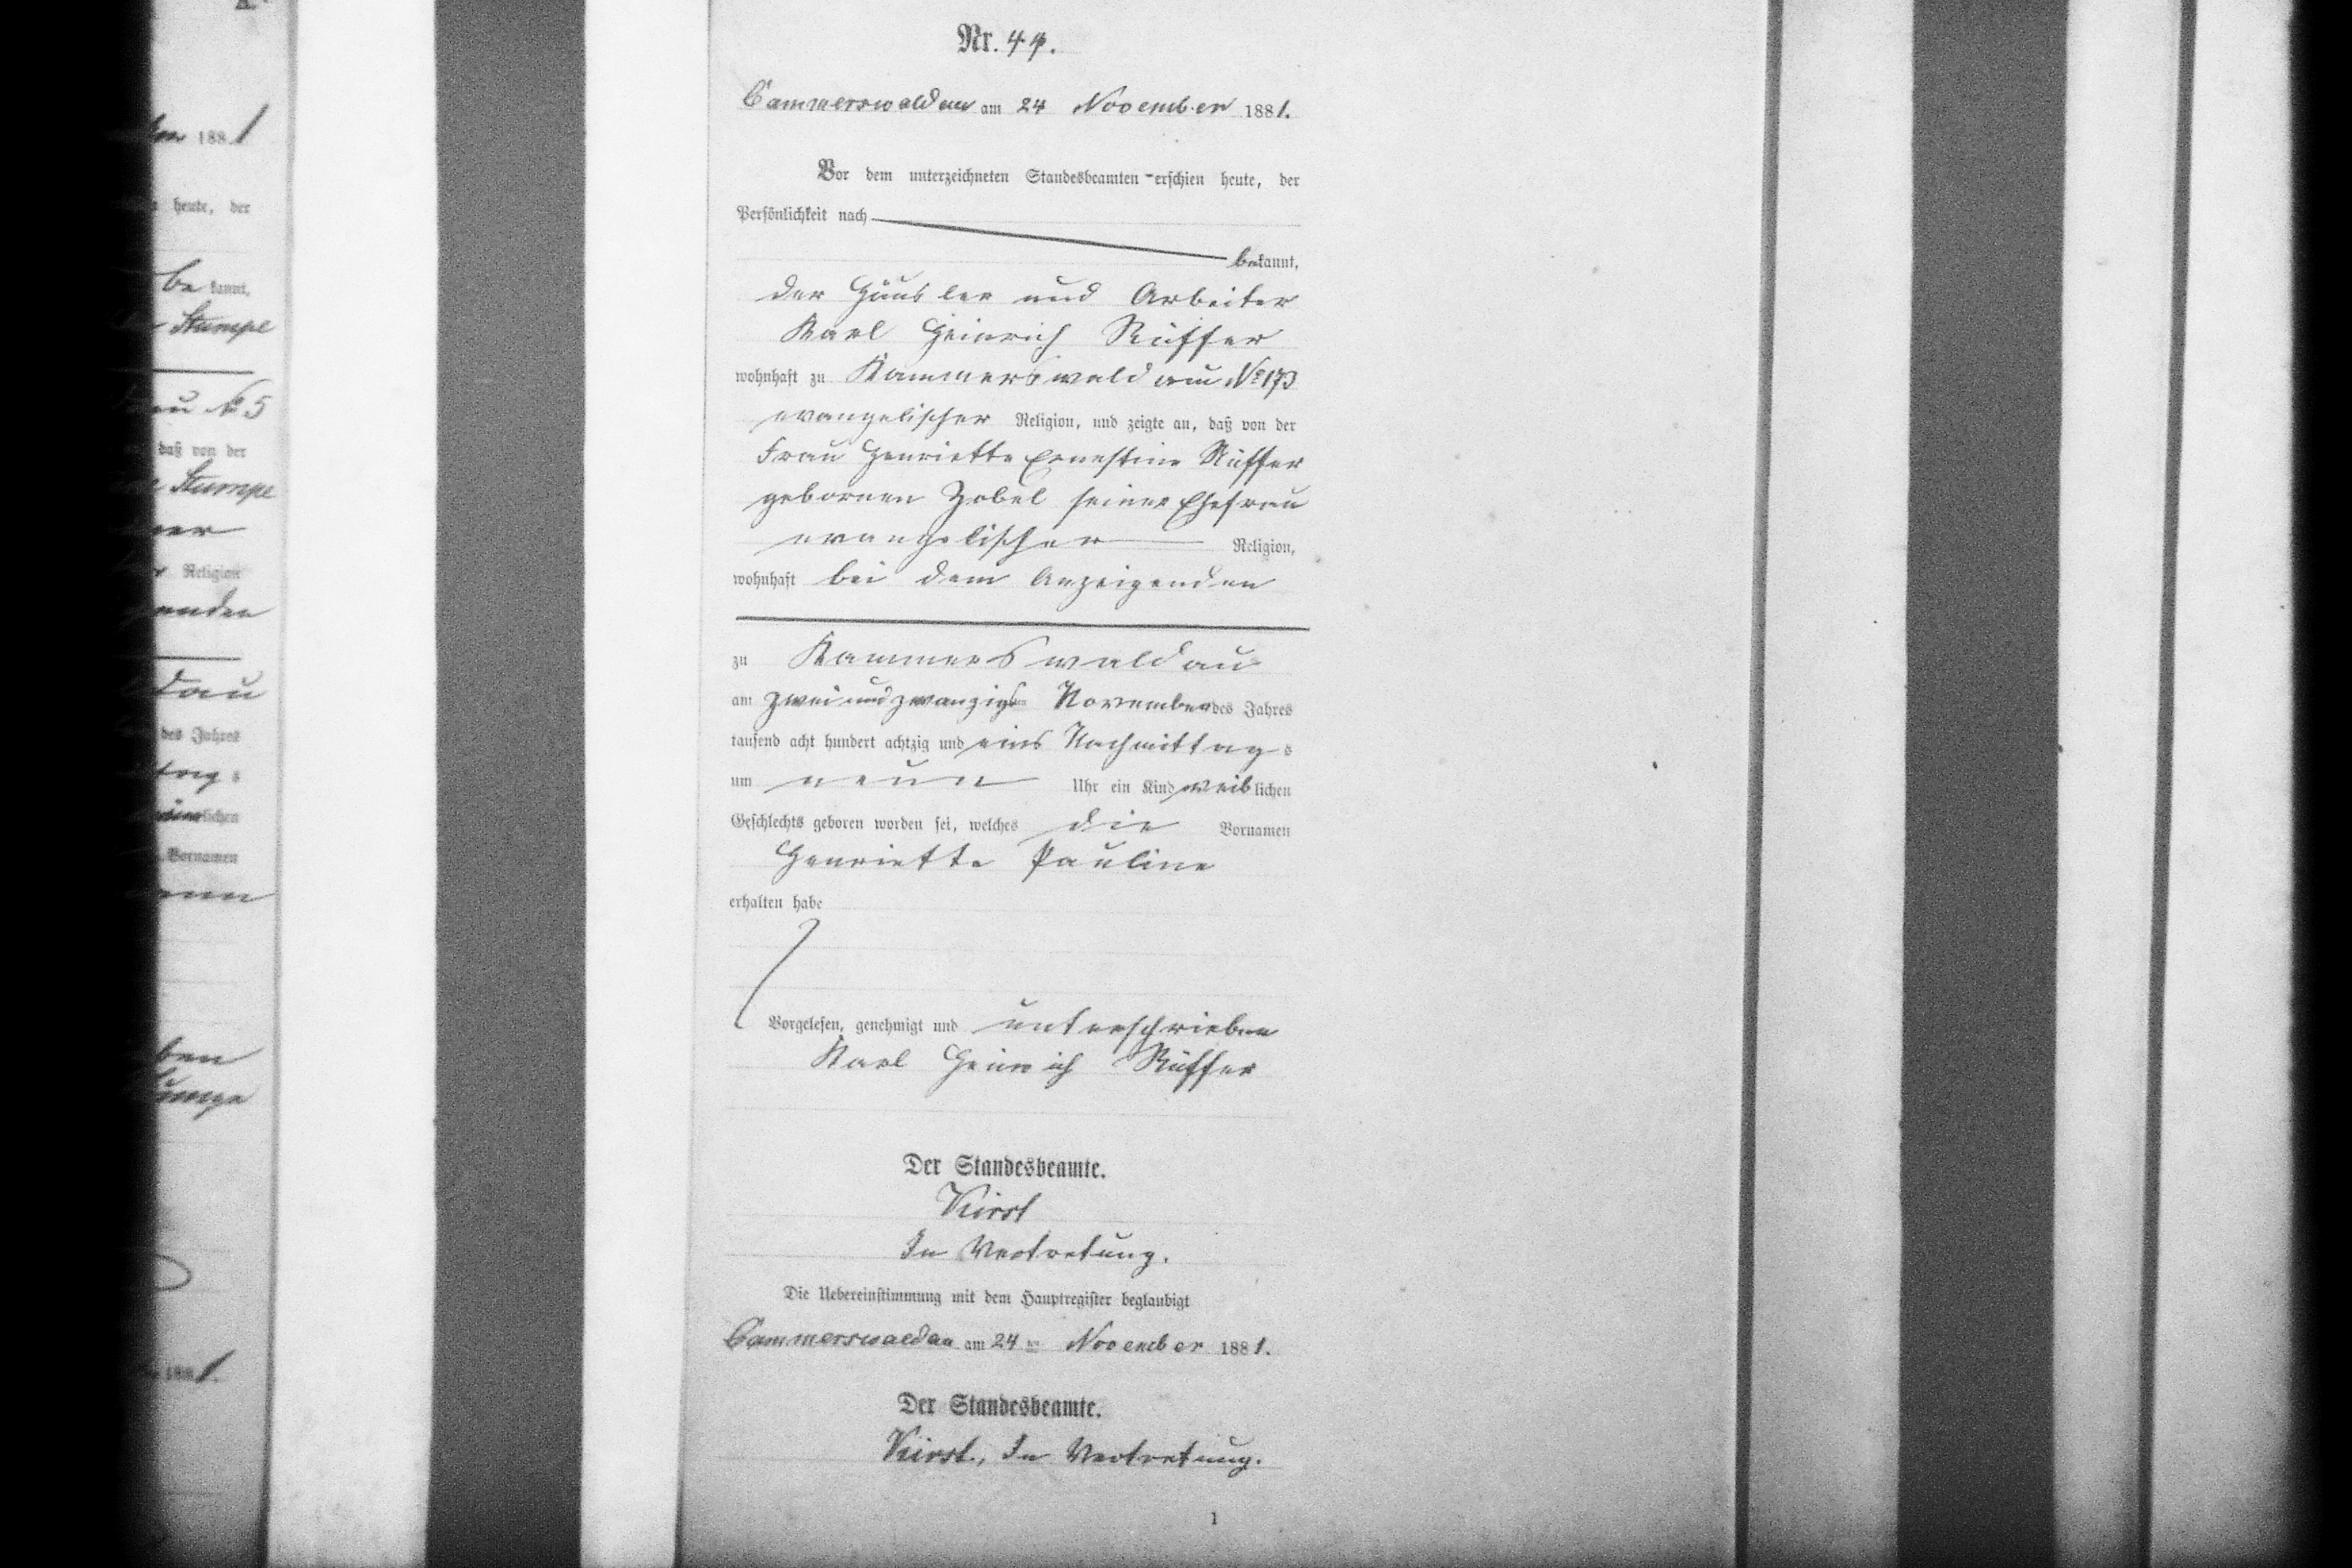 Nr. 44.
Cammerswaldau am 24 November 1881.
Vor dem unterzeichneten Standesbeamten erschien heute, der
Persönlichkeit nach
bekannt,
der Häusler und Arbeiter
Karl Heinrich Rüffer
wohnhaft zu Kammerswaldau No 173
evangelischer Religion, und zeigte an, daß von der
Frau Henriette Ernestine Rüffer
gebornen Zobel seiner Ehefrau
evangelischer Religion,
wohnhaft bei dem Anzeigenden
zu Kammerswaldau
am zwei und zwanzigsten November des Jahres
tausend acht hundert achtzig und eins Nachmittags
um neun Uhr ein Kind weiblichen
Geschlechts geboren worden sei, welches die Vornamen
Henriette Pauline
erhalten habe
Vorgelesen, genehmigt und unterschrieben
Karl Heinrich Rüffer
Der Standesbeamte.
Kirst
In Vertretung.
Die Uebereinstimmung mit dem Hauptregister beglaubigt
Cammerswaldau am 24ten November 1881.
Der Standesbeamte.
Kirst., In Vertretung.
1
1881
heute, der
bekannt,
Stumpe
No 5
daß von der
Stumpe
Religion
dau
des Jahres
lichen
Vornamen
ben
1881.